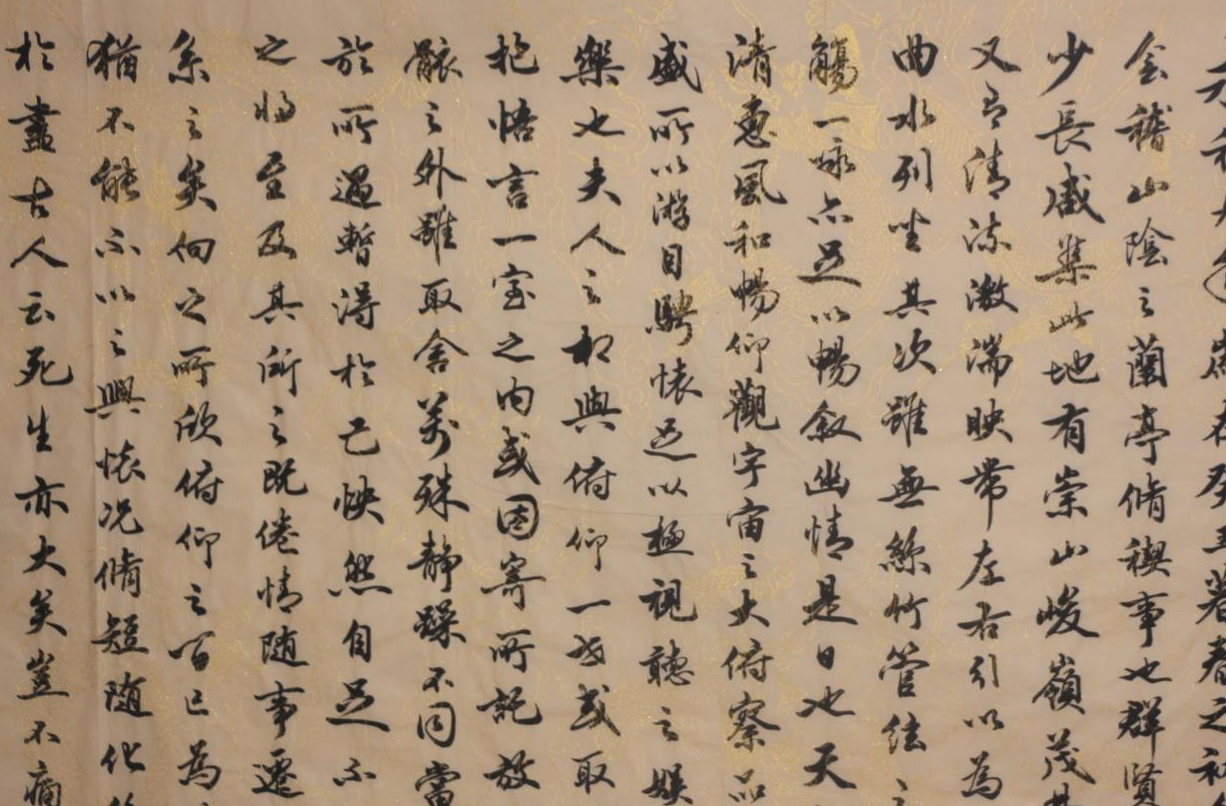 歲在癸丑暮春之初
会稽山陰之蘭亭脩禊事也群賢
少長咸集此地有崇山峻嶺茂
又有清流激湍映帶左右引以為
曲水列坐其次雖無絲竹管弦之
觴一詠亦足以暢敘幽情是日也天
清惠風和暢仰觀宇宙之大俯察品
盛所以游目騁懷足以極視聽之娛
樂也夫人之相與俯仰一世或取
抱悟言一室之内或因寄所託放
骸之外雖取舍萬殊静躁不同當
於所遇暫得於己怏然自足不
之將至及其所之既倦情随事遷
系之矣向之所欣俯仰之間已為
猶不能不以之興懷況脩短随化
於盡古人云死生亦大矣豈不痛